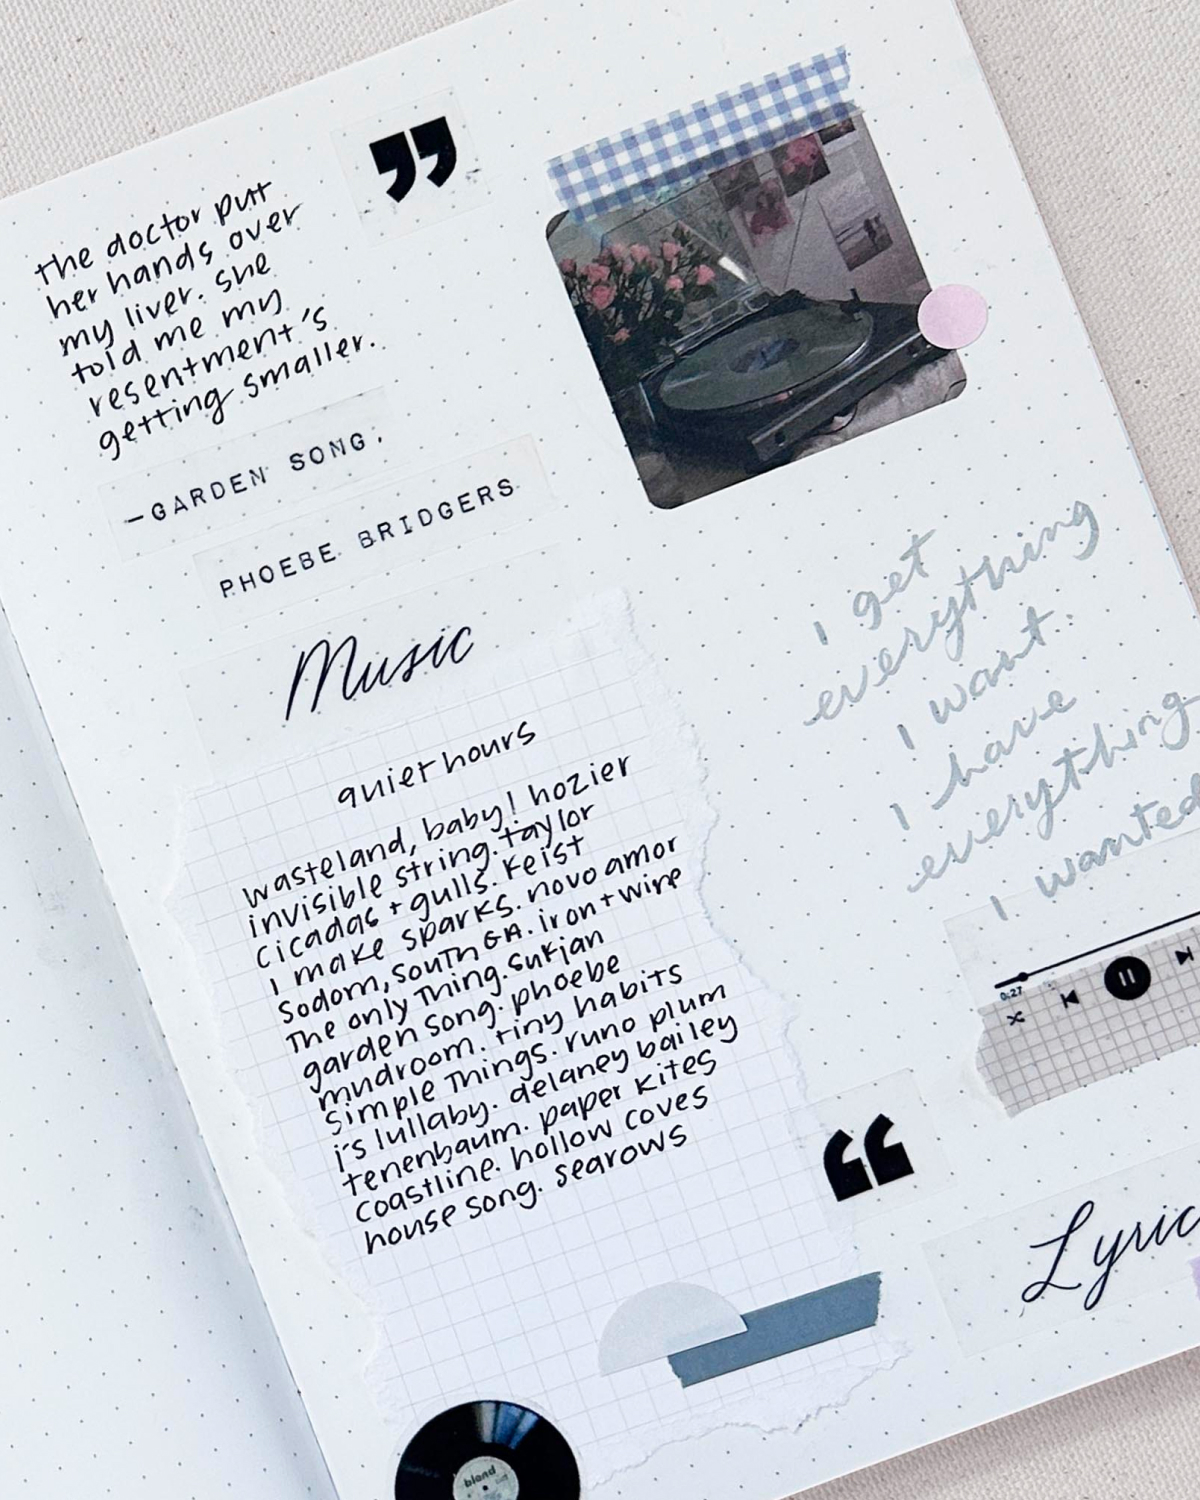 the doctor put
her hands over
my liver. she
told me my
resentment's
getting smaller.
—GARDEN SONG.
PHOEBE BRIDGERS
Music
quiet hours
wasteland, baby! hozier
invisible string. taylor
cicadas + gulls. keist
I make sparks. novo amor
sodom, south GA. iron + wine
The only Thing. sufjan
garden song. phoebe
mudroom. tiny habits
simple Things. runo plum
j's lullaby. delaney bailey
tenenbaum. paper kites
coastline. hollow coves
house song. searows
I get
everything
I want.
I have
everything
I wanted
0:27
Lyric
blond